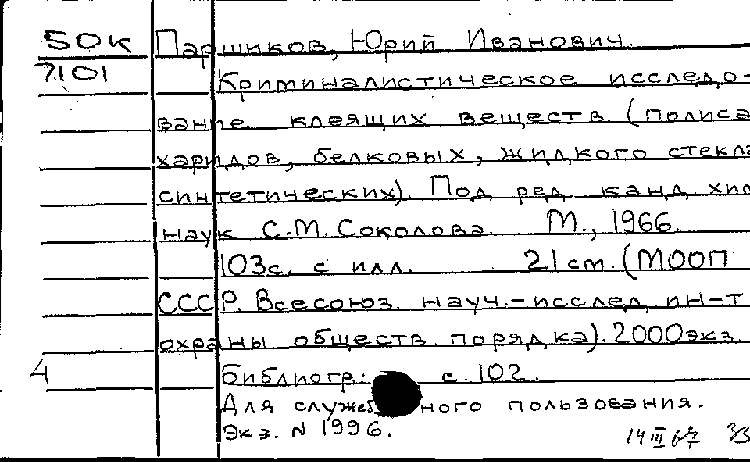 50к Паршиков, Юрий Иванович
7101 Криминалистическое исследо-
вание клеящих веществ (полиса
харидов, белковых, жидкого стекла
синтетических). Под ред. канд хим
наук С.М. Соколова. М., 1966.
103с. с илл. 21 cm. (МООП
СССР. Всесоюз. науч.-исслед. ин-т
охраны обществ. порядка). 2000экз.
4 Библиогр.: с. 102.
Для служебного пользования.
Экз. N 1996.
14 III 67